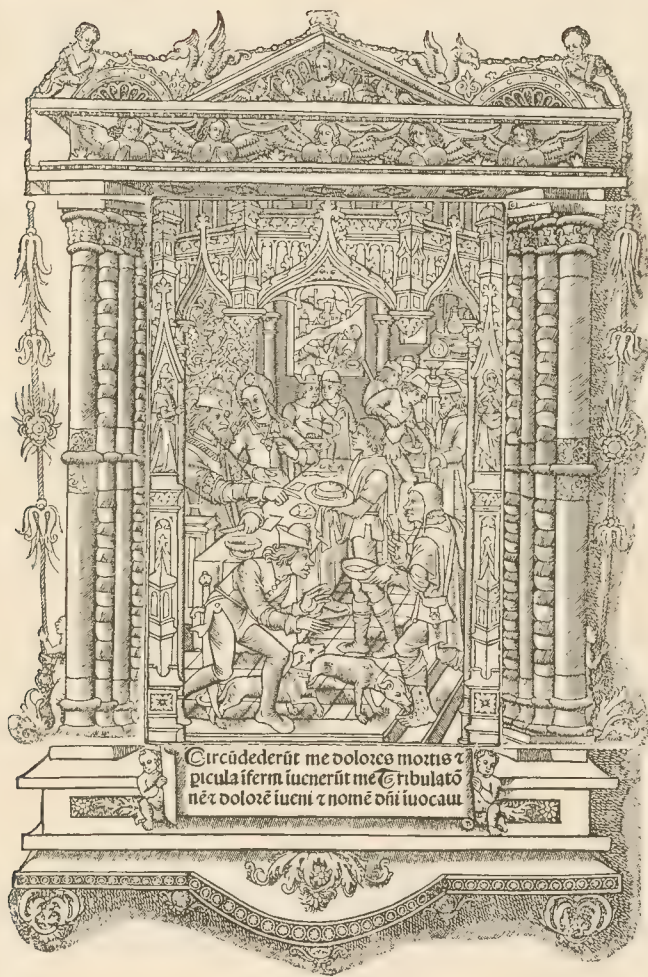 Circūdederūt me dolores mortis ⁊
ꝑicula iferni iuenerūt me Tribulatō
nē ⁊ dolorē iueni ⁊ nomē dñi iuocaui